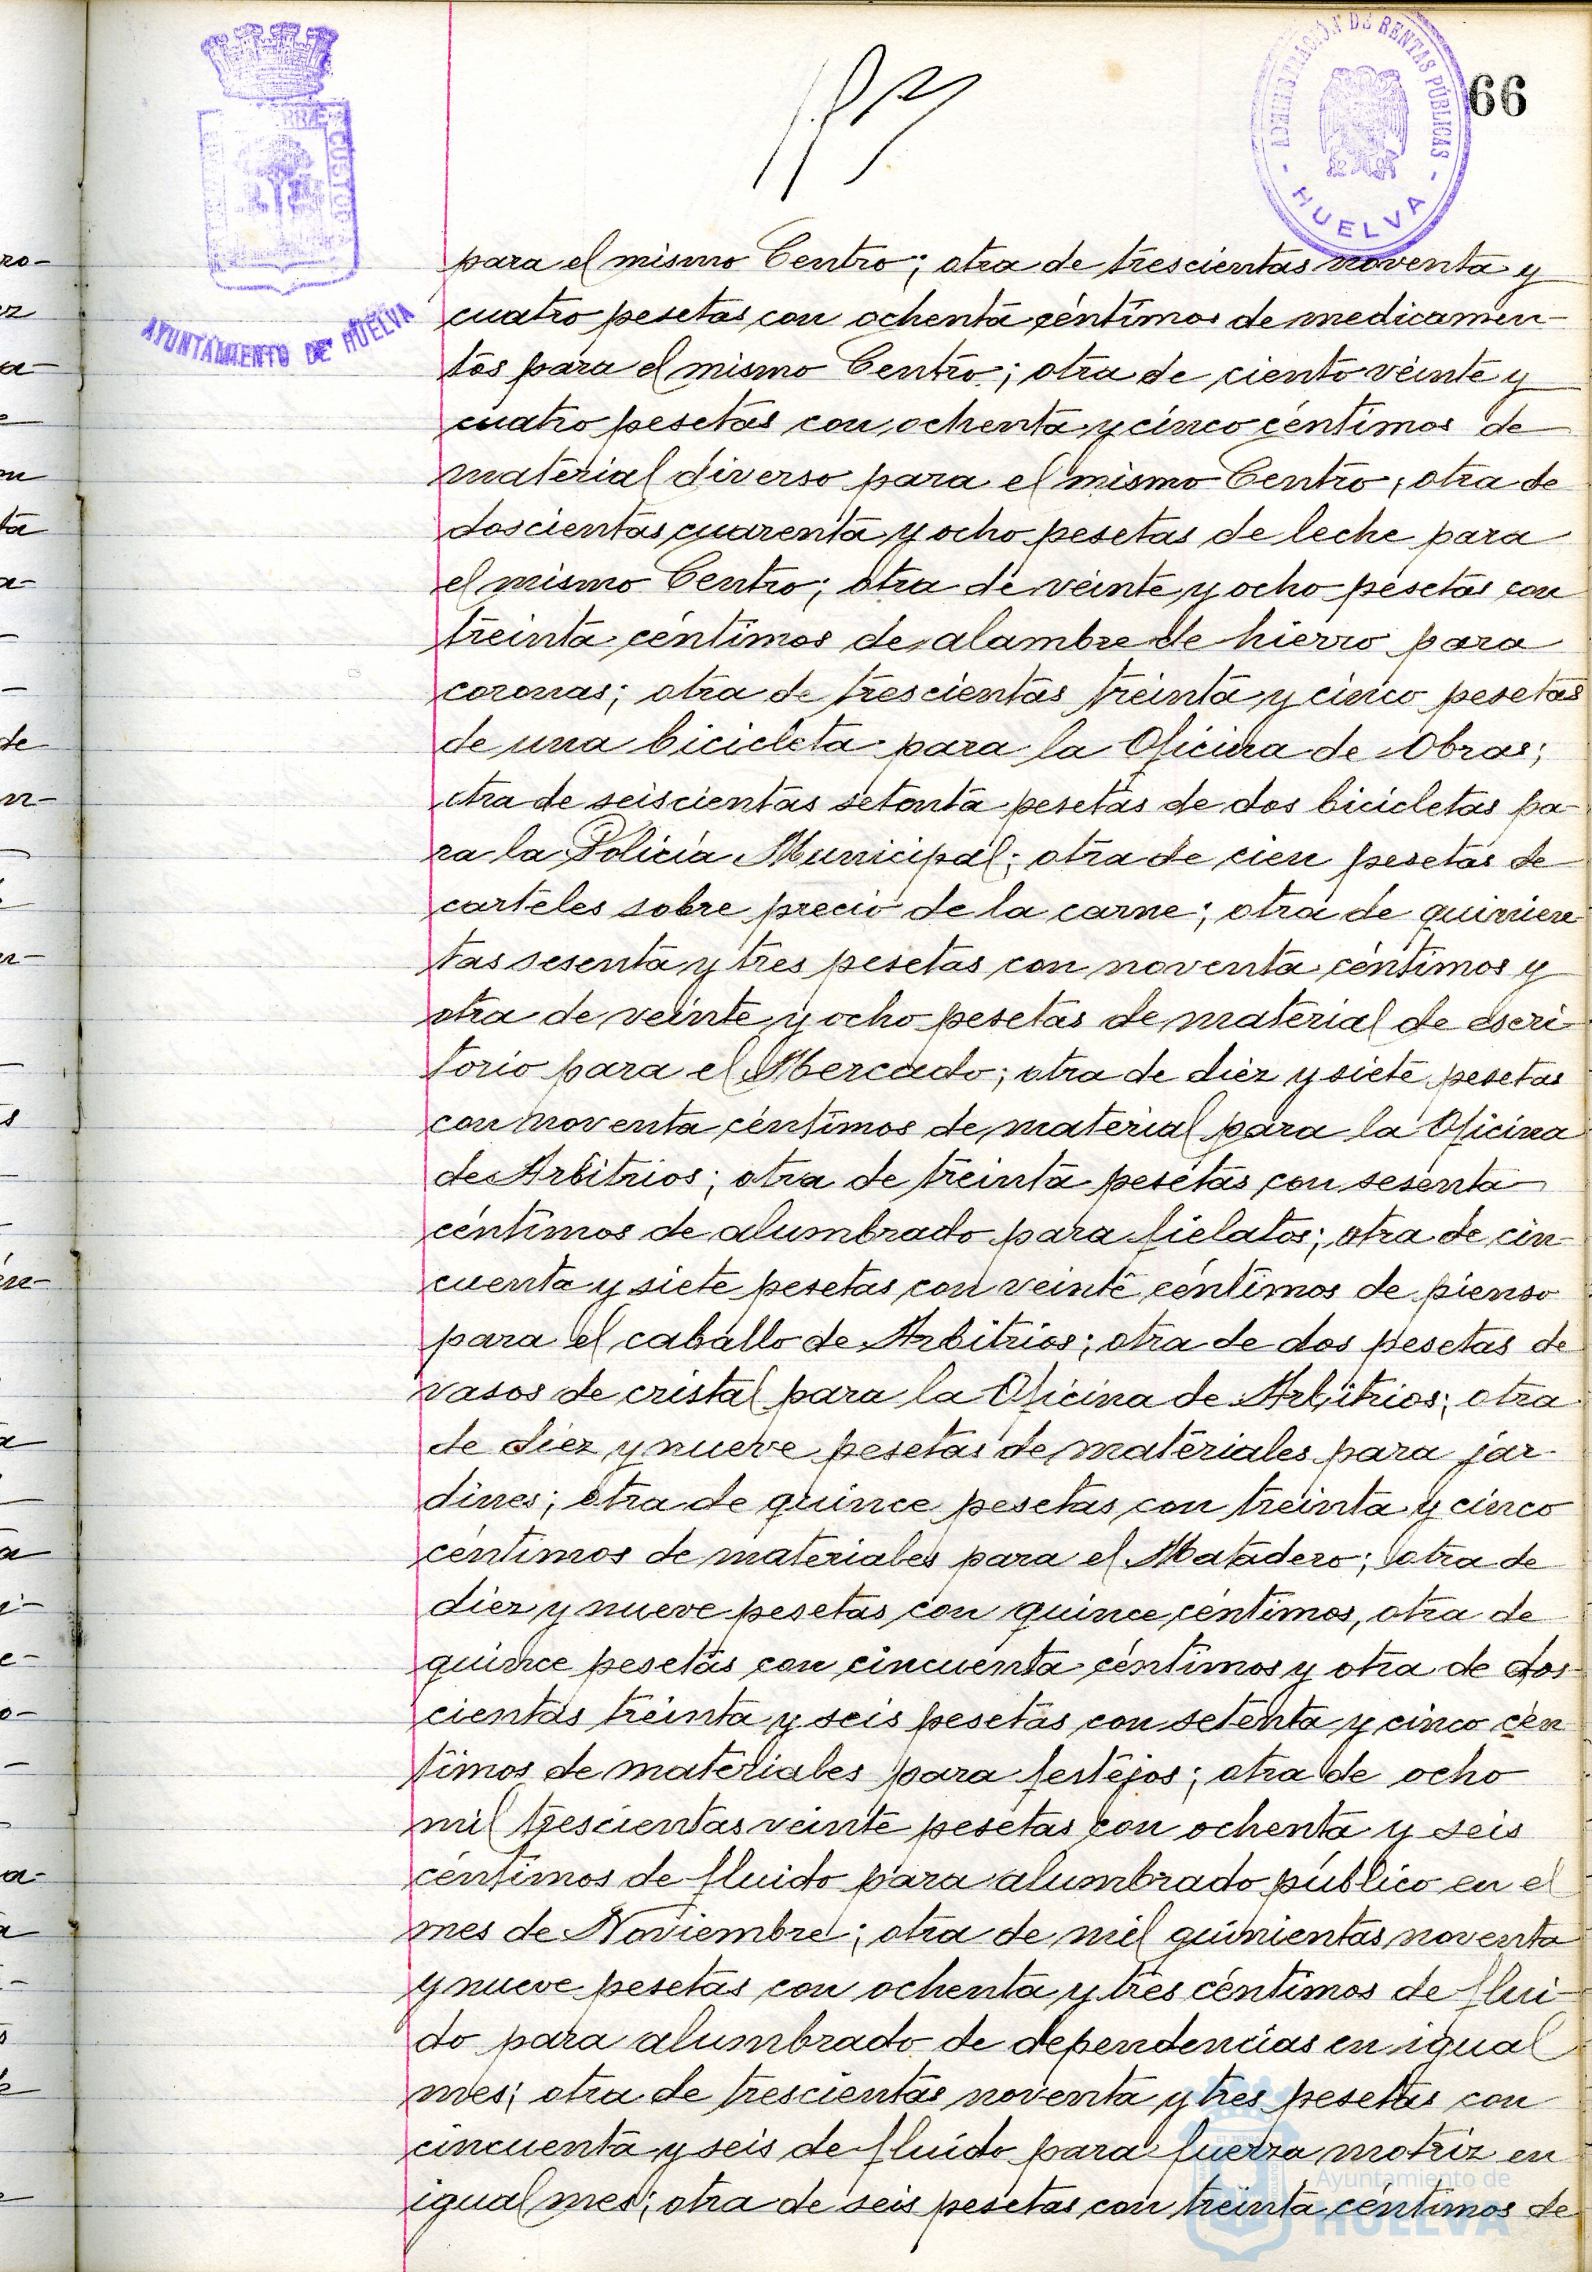 66
ADMINISTRACIÓN DE RENTAS PÚBLICAS
- HUELVA -
CUSTOD
AYUNTAMIENTO DE HUELVA
para el mismo Centro; otra de trescientas noventa y
cuatro pesetas con ochenta céntimos de medicamen-
tos para el mismo Centro; otra de ciento veinte y
cuatro pesetas con ochenta y cinco céntimos de
material diverso para el mismo Centro; otra de
doscientas cuarenta y ocho pesetas de leche para
el mismo Centro; otra de veinte y ocho pesetas con
treinta céntimos de alambre de hierro para
coronas; otra de trescientas treinta y cinco pesetas
de una bicicleta para la Oficina de Obras;
otra de seiscientas setenta pesetas de dos bicicletas pa-
ra la Policía Municipal; otra de cien pesetas de
carteles sobre precio de la carne; otra de quinien
tas sesenta y tres pesetas con noventa céntimos y
otra de veinte y ocho pesetas de material de escri-
torio para el Mercado; otra de diez y siete pesetas
con noventa céntimos de material para la Oficina
de Arbitrios; otra de treinta pesetas con sesenta
céntimos de alumbrado para fielatos; otra de cin-
cuenta y siete pesetas con veinte céntimos de pienso
para el caballo de Arbitrios; otra de dos pesetas de
vasos de cristal para la Oficina de Arbitrios; otra
de diez y nueve pesetas de materiales para jar-
dines; otra de quince pesetas con treinta y cinco
céntimos de materiales para el Matadero; otra de
diez y nueve pesetas con quince céntimos, otra de
quince pesetas con cincuenta céntimos y otra de dos-
cientas treinta y seis pesetas con setenta y cinco cén
timos de materiales para festejos; otra de ocho
mil trescientas veinte pesetas con ochenta y seis
céntimos de fluido para alumbrado público en el
mes de Noviembre; otra de mil quinientas noventa
y nueve pesetas con ochenta y tres céntimos de flui-
do para alumbrado de dependencias en igual
mes; otra de trescientas noventa y tres pesetas con
cincuenta y seis de fluido para fuerza motriz en
igual mes; otra de seis pesetas con treinta céntimos de
Ayuntamiento de
HUELVA